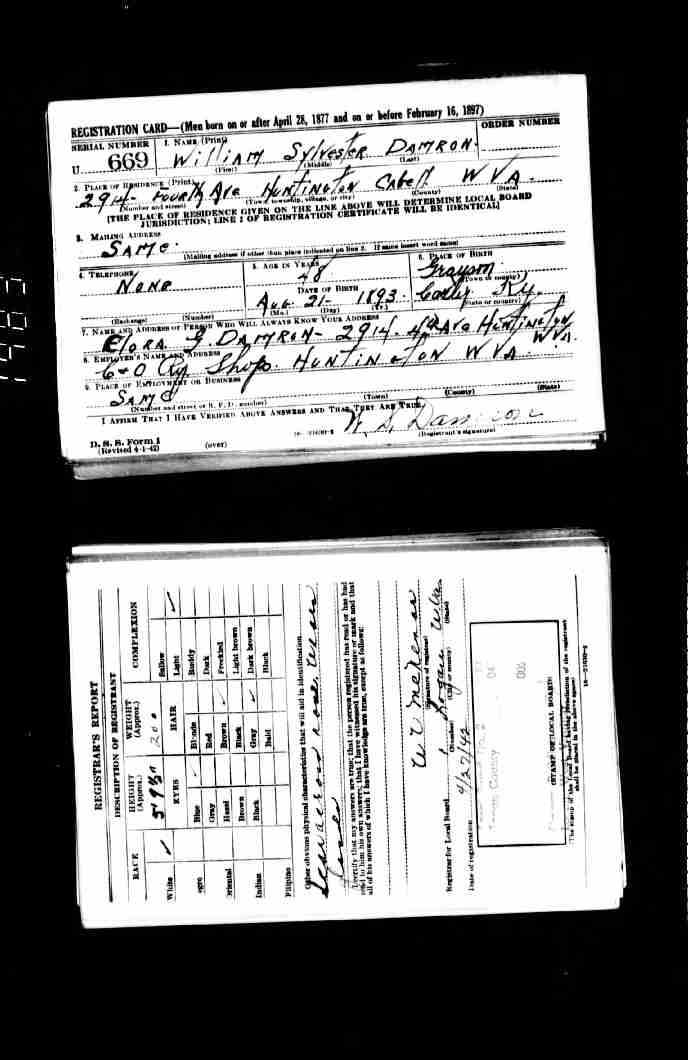 REGISTRATION CARD—(Men born on or after April 28, 1877 and on or before February 16, 1897)
SERIAL NUMBER
1. NAME (Print)
ORDER NUMBER
U 669
William Sylvester Damron
(First) (Middle) (Last)
2. PLACE OF RESIDENCE (Print)
2914 - Fourth Ave Huntington Cabell W VA.
(Number and street) (Town, township, village, or city) (County) (State)
[THE PLACE OF RESIDENCE GIVEN ON THE LINE ABOVE WILL DETERMINE LOCAL BOARD
JURISDICTION; LINE 1 OF REGISTRATION CERTIFICATE WILL BE IDENTICAL]
3. MAILING ADDRESS
Same.
(Mailing address if other than place indicated on line 2. If same insert word same)
4. TELEPHONE
5. AGE IN YEARS
6. PLACE OF BIRTH
None
48
Grayson
(Town or county)
DATE OF BIRTH
Aug. 21- 1893.
Ky.
(Exchange) (Number)
(Mo.) (Day) (Yr.)
(State or country)
7. NAME AND ADDRESS OF PERSON WHO WILL ALWAYS KNOW YOUR ADDRESS
Elora G. Damron - 2914. 4th Ave Huntington W VA.
8. EMPLOYER'S NAME AND ADDRESS
C+O Ry Shops. Huntington W VA.
9. PLACE OF EMPLOYMENT OR BUSINESS
Same
(Number and street or R. F. D. number) (Town) (County) (State)
I AFFIRM THAT I HAVE VERIFIED ABOVE ANSWERS AND THAT THEY ARE TRUE.
W. S. Damron
(Registrant's signature)
D. S. S. Form 1
(Revised 4-1-42)
(over)
16—21630-2
REGISTRAR'S REPORT
DESCRIPTION OF REGISTRANT
RACE
HEIGHT
(Approx.)
WEIGHT
(Approx.)
COMPLEXION
5' 9½"
200
EYES
HAIR
White ✓
Sallow
Light ✓
Blue ✓
Blonde
Ruddy
egro
Gray
Red
Dark
Oriental
Hazel
Brown ✓
Freckled
Brown
Black
Light brown
Indian
Black
Gray ✓
Dark brown
Bald
Black
Filipino
Other obvious physical characteristics that will aid in identification
Scar across nose. Wears
I certify that my answers are true; that the person registered has read or has had
read to him his own answers; that I have witnessed his signature or mark and that
all of his answers of which I have knowledge are true, except as follows:
(Signature of registrar)
Registrar for Local Board
Logan W.Va.
(Number) (City or county) (State)
Date of registration
4/27/42
(STAMP OF LOCAL BOARD)
(The stamp of the Local Board having jurisdiction of the registrant
shall be placed in the above space)
16—21630-2